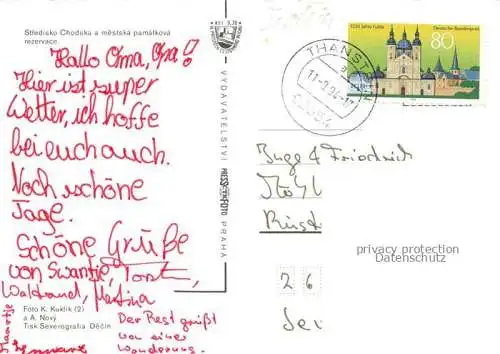 Středisko Chodska a městská památková
rezervace
Hallo Oma, Opa!
Hier ist super
Wetter, ich hoffe
bei euch auch.
Noch schöne
Tage.
Schöne Grüße
von Swantje, Torst,
Waltraud, Martina
Foto K. Kuklík (2)
a A. Nový
Tisk Severografia Děčín
Der Rest grüßt
von einer
Wanderung.
VYDAVATELSTVÍ
PRESSFOTO
PRAHA
Deutsche Bundespost
80
THANSTEIN
Inge & Friedrich
privacy protection
Datenschutz
26